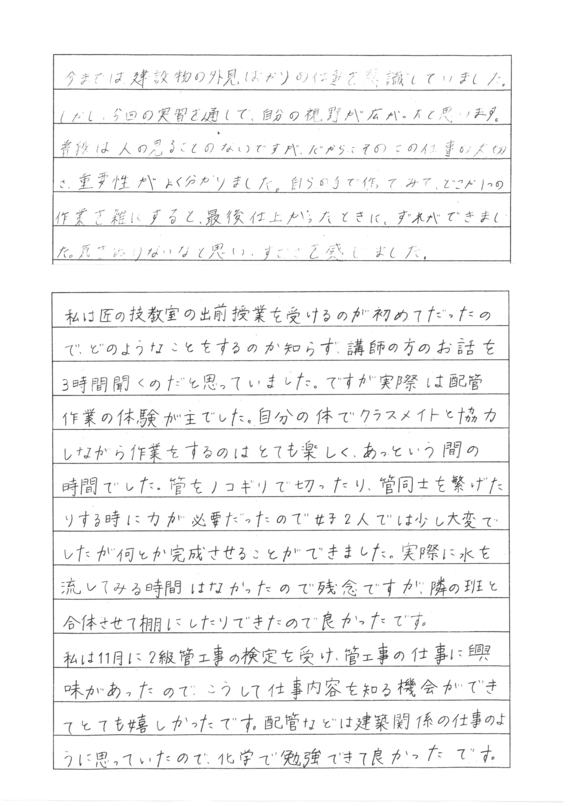 今までは建設物の外見ばかりの仕事を意識していました。
しかし、今回の実習を通して、自分の視野が広がったと思います。
普段は人の見ることのないですが、だからこそのこの仕事の大切
さ、重要性がよく分かりました。自らの手で作ってみて、どこか1つの
作業を雑にすると、最後仕上がったときに、ずれができまし
た。気をぬけないなと思い、すごさを感じました。
私は匠の技教室の出前授業を受けるのが初めてだったの
で、どのようなことをするのか知らず、講師の方のお話を
3時間聞くのだと思っていました。ですが実際は配管
作業の体験が主でした。自分の体でクラスメイトと協力
しながら作業をするのはとても楽しく、あっという間の
時間でした。管をノコギリで切ったり、管同士を繋げた
りする時に力が必要だったので女子2人では少し大変で
したが何とか完成させることができました。実際に水を
流してみる時間はなかったので残念ですが、隣の班と
合体させて棚にしたりできたので良かったです。
私は11月に2級管工事の検定を受け、管工事の仕事に興
味があったので、こうして仕事内容を知る機会ができ
てとても嬉しかったです。配管などは建築関係の仕事のよ
うに思っていたので、化学で勉強できて良かったです。